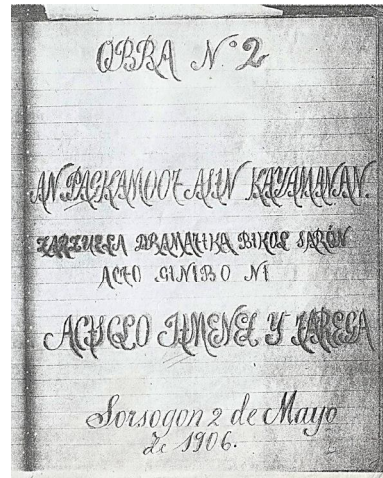 OBRA Nº 2
AN PAGKAMOOT ASIN KAYAMANAN.
ZARZUELA DRAMATIKA BIKOL SARÓN
ACTO GINIBO NI
ACISCLO JIMENEZ Y
Sorsogon 2 de Mayo
de 1906.